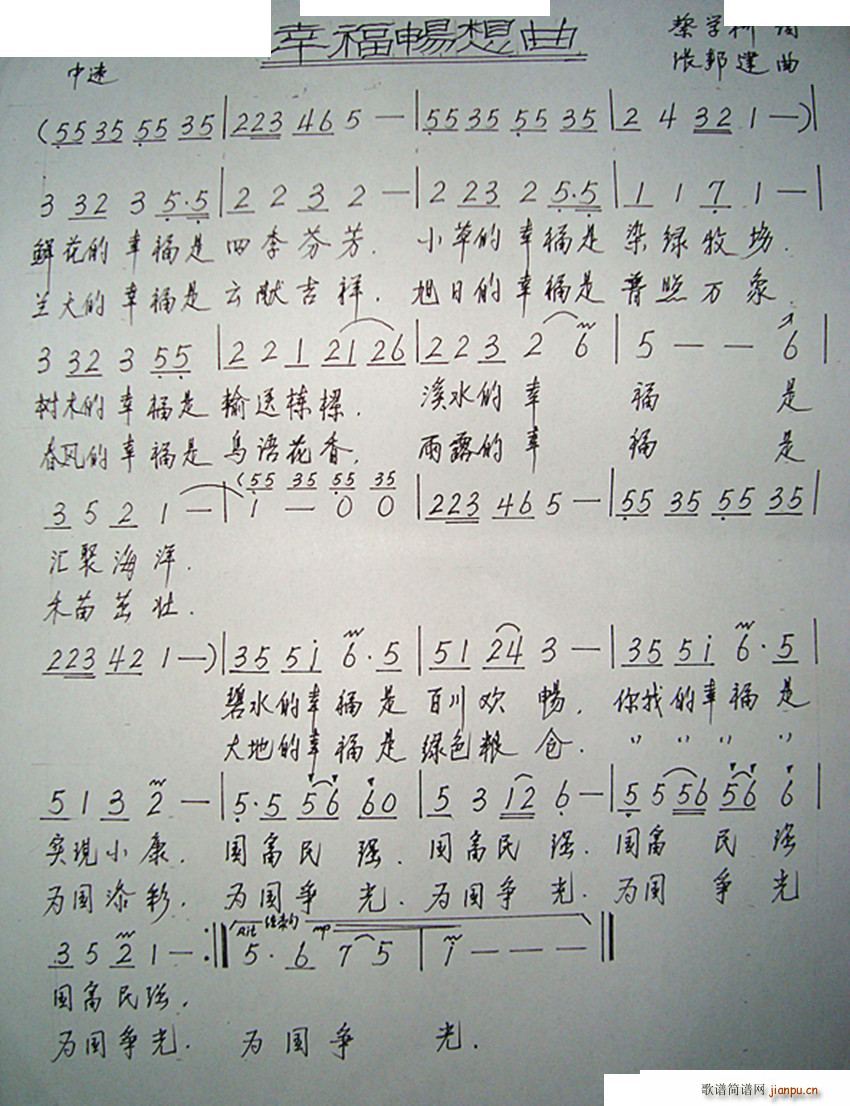 幸福暢想曲
蔡学柯 词
张邦建 曲
中速
(55 35 55 35 | 223 46 5 — | 55 35 55 35 | 2 4 32 1 —) |
3 32 3 5·5 | 2 2 3 2 — | 2 23 2 5·5 | 1 1 7 1 — |
鲜花的幸福是四季芬芳. 小草的幸福是染绿牧场.
兰天的幸福是云献吉祥. 旭日的幸福是普照万象.
3 32 3 55 | 2 2 1 21 26 | 2 2 3 2 6 | 5 — — 6 |
树木的幸福是输送栋樑. 溪水的幸福是
春风的幸福是鸟语花香. 雨露的幸福是
(55 35 55 35
3 5 2 1 — | 1 — 0 0 | 223 46 5 — | 55 35 55 35 |
汇聚海洋.
禾苗茁壮.
223 42 1 —) | 35 5i 6·5 | 51 24 3 — | 35 5i 6·5 |
碧水的幸福是百川欢畅. 你我的幸福是
大地的幸福是绿色粮仓. " " " " "
5 1 3 2 — | 5·5 56 60 | 5 3 12 6 — | 5 5 56 56 6 |
实现小康. 国富民强. 国富民强. 国富民强
为国添彩. 为国争光. 为国争光. 为国争光
Rit 结束句 mp
3 5 2 1 — :‖ 5· 6 7 5 | i — — — ‖
国富民强.
为国争光. 为国争光.
歌谱简谱网 jianpu.cn